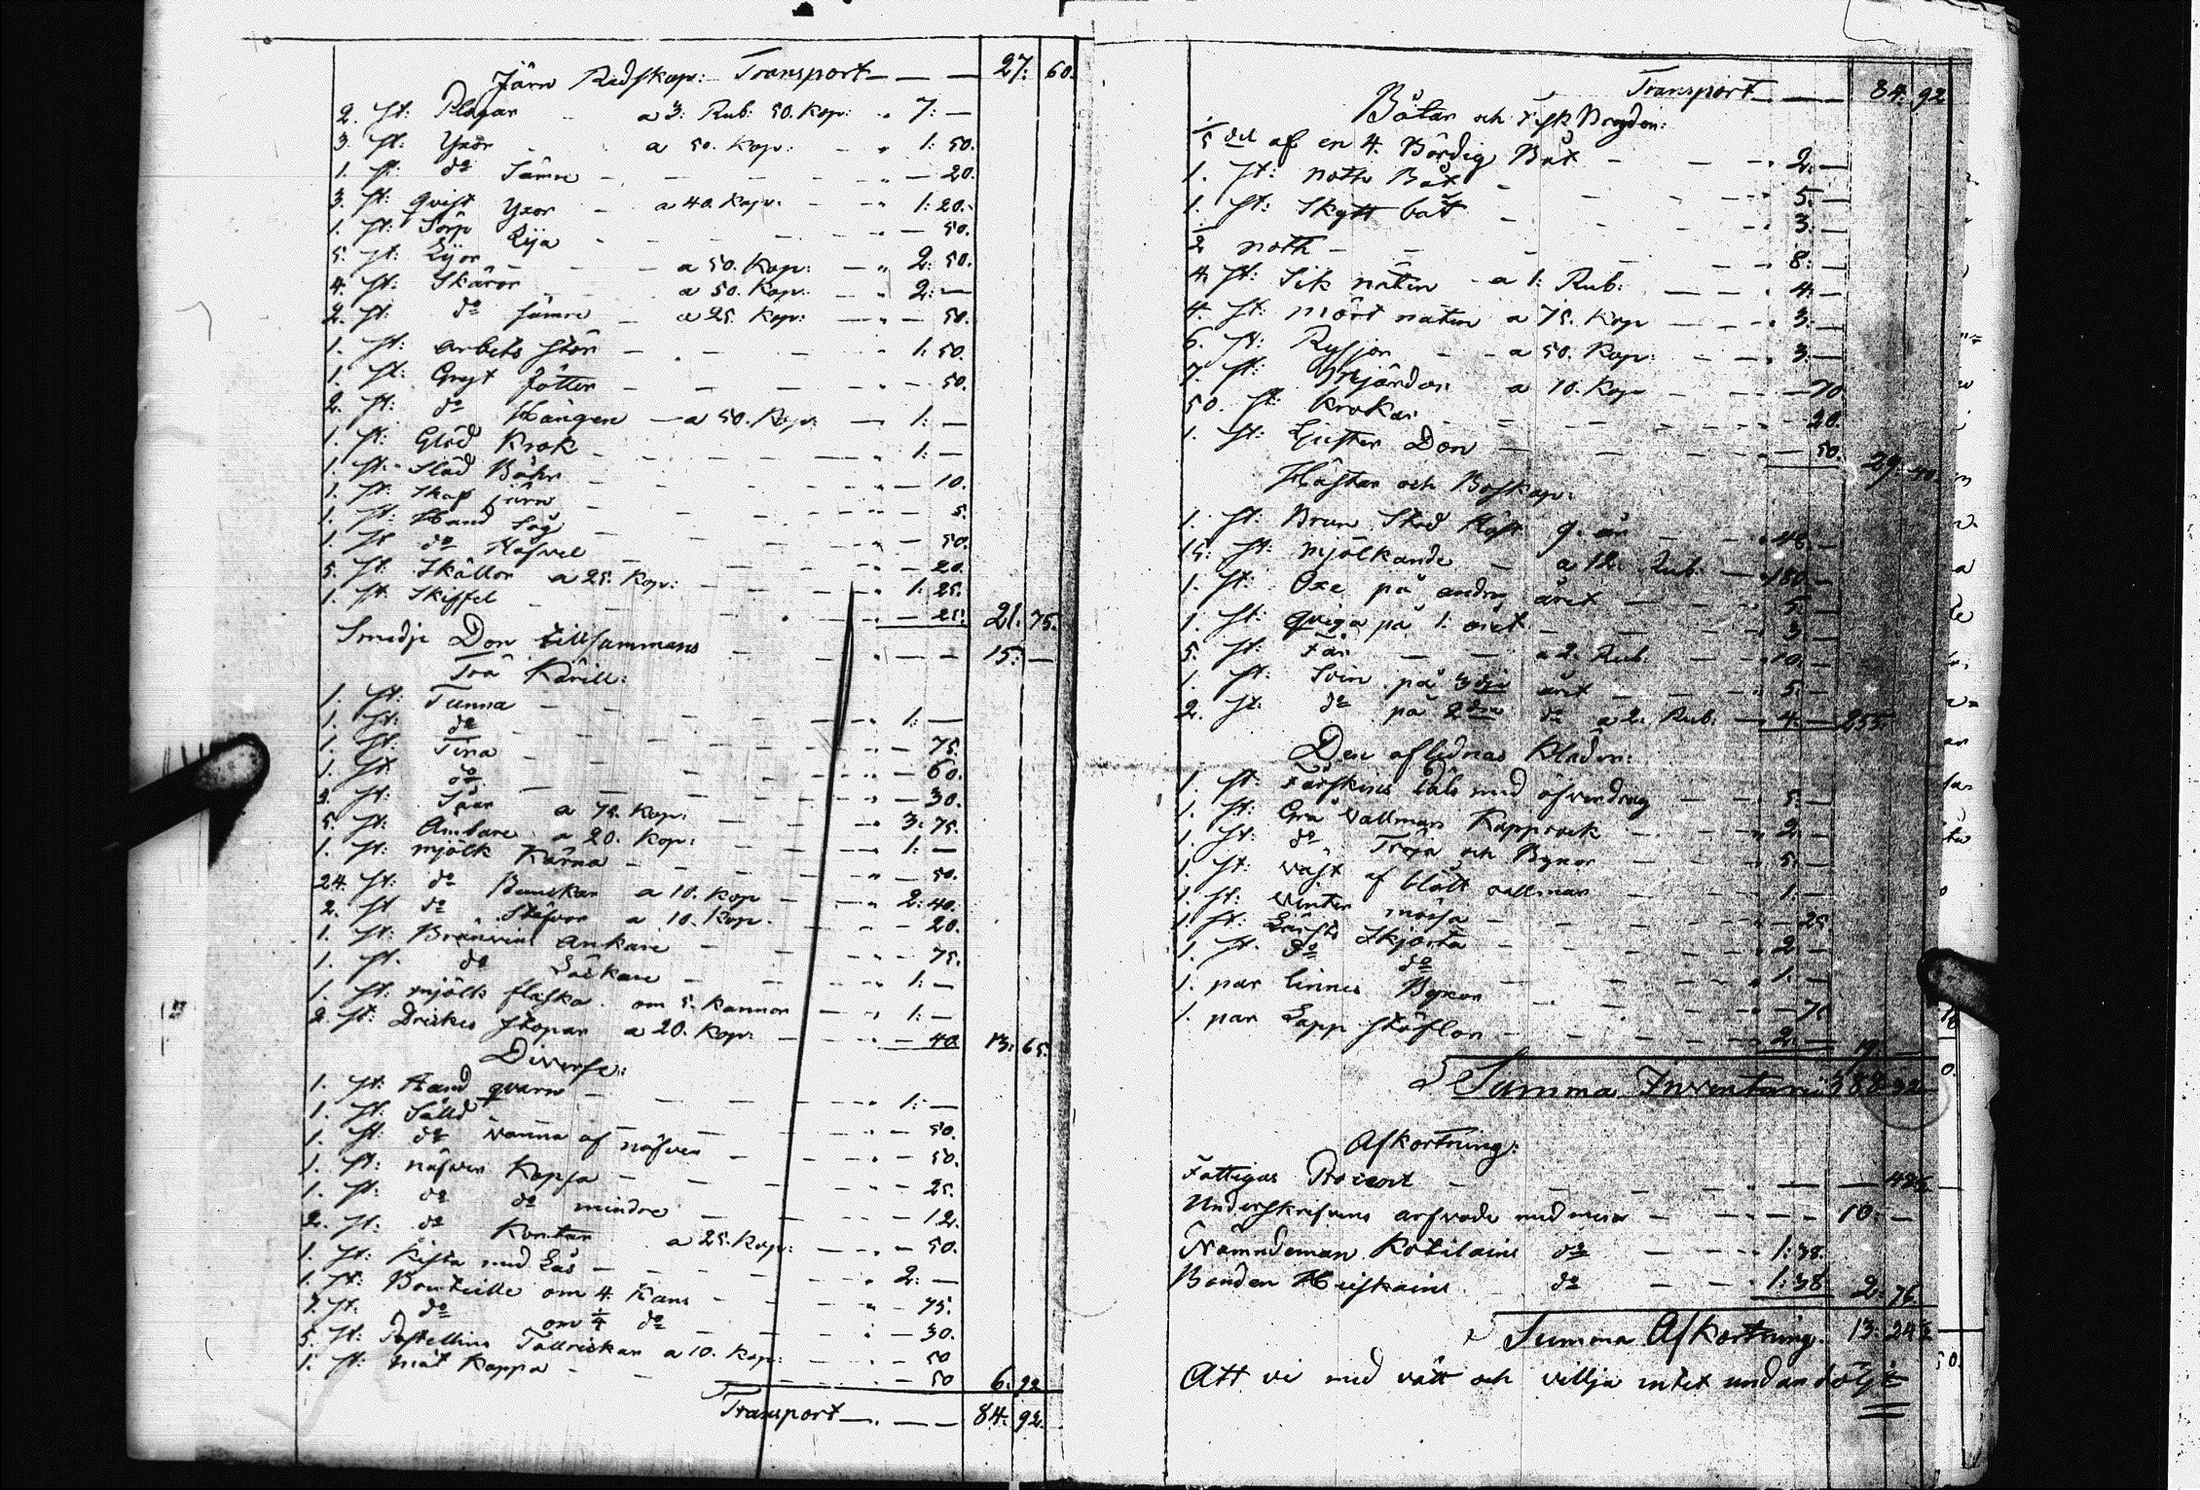 Järn Redskap: Transport — — — 27: 60.
2. St: Plogar - a 3: Rub: 50. Kop: " 7: —
3. St: Yxor - a 50. Kop: - " 1: 50.
1. St: do Sämre - - - " — 20.
3. St: qvist Yxor - a 40. Kop: - " 1: 20.
1. St: Lija - - " — 50.
5. St: Lijor - - a 50. Kop: — " 2: 50.
4. St: Skäror - a 50. Kop: - " 2: —
2. St: do sämre - a 25. Kop: — " — 50.
1. St: arbets - - - " 1: 50.
1. St: Gryt fötter - - - " — 50.
2. St: do Hängen — a 50. Kop: — " 1: —
1. St: Glöd Krok - - - " 1: —
1. St: - - - " — 10.
1. St: Skaf järn - - - " — 5.
1. St: Hand Såg - - - " — 50.
1. St: do Nafvel - - - " — 20.
5. St: Skällor a 25. Kop: - - " 1: 25.
1. St: Skiffel - - - " — 25. 21. 75.
Smedje Don tillsammans - - - " — 15: —
Trä Kärill:
1. St: Tunna - - - " 1: —
1. St: do - - - " — 75.
1. St: Tina - - - " — 60.
1. St: do - - - " — 30.
5. St: Såar a 75. Kop: - - " 3: 75.
5. St: Ämbare a 20. Kop: - - " 1: —
1. St: mjölk Kärna - - - " — 50.
24. St: do Bunckar a 10. Kop - - " 2: 40.
2. St: do Stäfvor a 10. Kop. - - — 20.
1. St: Bränvins Ankare - - - " — 75.
1. St: do Läckare - - - " 1: —
1. St: mjölk flaska om 5. Kannor — - " 1: —
2. St: Drickes Stopar a 20. Kop: - - — 40. 13: 65.
Diverse:
1. St: Hand qvarn - - - " 1: —
1. St: Såld - - - " — 50.
1. St: do vanna af näfver - - " — 50.
1. St: näfver Kopsa - - - " — 25.
1. St: do do mindre - - " — 12.
2. St: do Kontar a 25. Kop: — " — 50.
1. St: Kista med Lås - - - " 2: —
1. St: Bouteille om 4 Kans - - " — 75.
7. St: do om 1/4 do - - " — 30.
5. St: Postellins Tallrickar a 10. Kop: - - " — 50
1. St: mat Koppa - - - " — 50 6: 92
Transport — — — 84: 92.
Transport — — 84: 92
Båtar och
1/5 del af en 4. Bördig Båt - - - " 2: —
1. St: noth Båt - - - " 5: —
1. St: Skytt båt - - - " 3: —
1/2 noth - - - " 8: —
4. St: Sik nätin - a 1: Rub: — - " 4: —
4. St: mört nätin a 75. Kop - - " 3: —
6. St: Ryssjor - - a 50. Kop: - " 3: —
7. St: a 10. Kop - - — 70
50. St: Krokar - - - — 20.
1. St: Ljuster Don - - - — 50. 29: 40.
Hästar och Boskap:
1. St: Brun Stod Häst 9. år - - " 48: —
15. St: mjölkande - a 12. Rub: — " 180: —
1. St: Oxe på andra året — - " 5: —
1. St: qviga på 1. året - - " 3: —
5. St: Får - - a 2. Rub: - - " 10: —
1. St: Svin på 3dje året - - " 5: —
2. St: do på 2dra do a 2. Rub: — 4: — 255:
Den aflidnas Kläder:
1. St: Fårskins Päls med öfverdrag - - " 5: —
1. St: Grå Vallmans Kapprock - - " 2: —
1. St: do Tröja och Byxor - - " 5: —
1. St: väst af blått vallmar - - " 1: —
1. St: vinter mössa - - - — 25
1. St: Lärfts Skjorta - - - " 2: —
1. St: do do - - - " 1: —
1. par linnes Byxor - - - " — 75
1. par Lapp stöflor - - - " 2: — 19: —
Summa Inventarii 388: 32
Afkortning:
Fattigas Procent - - - " — — 48 1/2
Underskrifvens arfvode med mera - - - 10: —
Nämndeman Kotilains do - - " 1: 38.
Bonden Heiskains do - - " 1: 38 2: 76.
Summa Afkortning. 13: 24 1/2
Att vi med vett och villja intet undandöljt